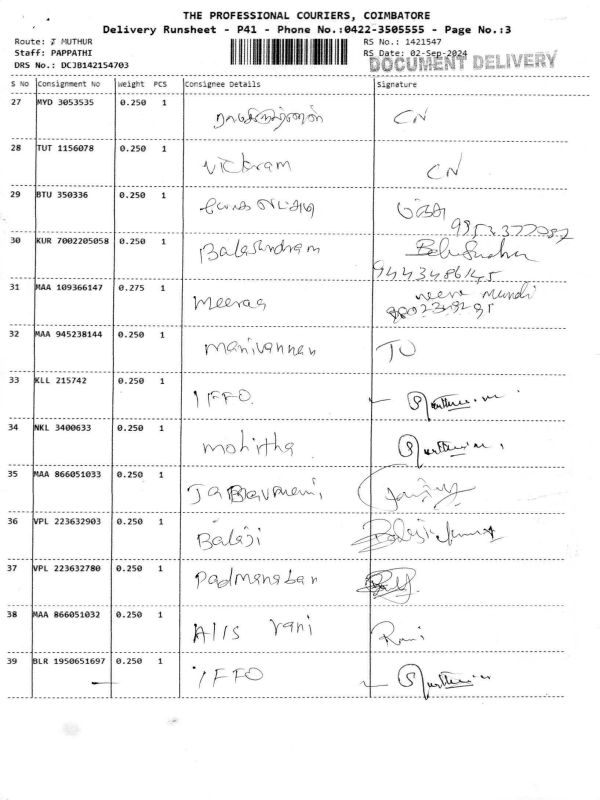 THE PROFESSIONAL COURIERS, COIMBATORE
Delivery Runsheet - P41 - Phone No.:0422-3505555 - Page No.:3
Route: 7 MUTHUR RS No.: 1421547
Staff: PAPPATHI RS Date: 02-Sep-2024
DRS No.: DCJB142154703 DOCUMENT DELIVERY
S No Consignment No Weight PCS Consignee Details Signature
27 MYD 3053535 0.250 1 CN
28 TUT 1156078 0.250 1 Vickram CN
29 BTU 350336 0.250 1
30 KUR 7002205058 0.250 1 Balachndram
9443486145
31 MAA 109366147 0.275 1 Meeraa
32 MAA 945238144 0.250 1 Manivannan TO
33 KLL 215742 0.250 1 IFFO
34 NKL 3400633 0.250 1 Mohirtha
35 MAA 866051033 0.250 1
36 VPL 223632903 0.250 1 Balaji
37 VPL 223632780 0.250 1 Padmanaban
38 MAA 866051032 0.250 1 Alis rani Rani
39 BLR 1950651697 0.250 1 IFFO